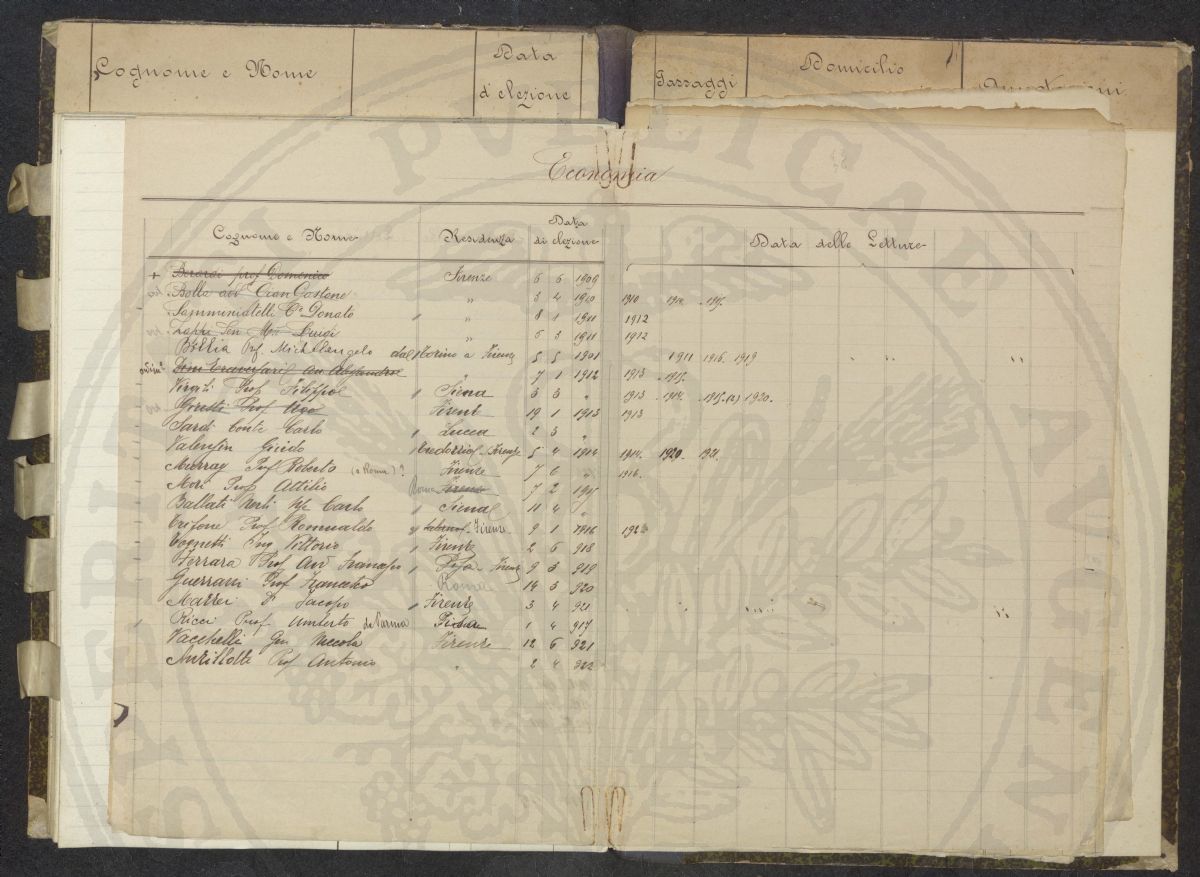 Cognome e Nome Data d'elezione Passaggi Domicilio
Economia
Cognome e Nome Residenza Data di elezione Data delle Letture
+ Berardi prof Domenico Firenze 6 6 1909
Bolla avv Gian Gastone " 3 4 1910 1910 1914 1915
Samminiatelli Cte Donato " 8 1 1911 1912
Luigi " 6 3 1911 1912
Prof. Michelangelo dal Torino a Firenze 5 5 1901 1911 1916 1919
7 1 1912 1913 1915
Virgili Prof Filippo Siena 3 3 " 1913 1914 1915 (2) 1920
Prof Ugo Firenze 19 1 1913 1913
Sardi Conte Carlo Lucca 2 3 "
Valensin Guido Firenze 5 4 1914 1914 1920 1921
Murray Prof Roberto (a Roma)? Firenze 7 6 " 1916
Mori Prof Attilio Roma Firenze 7 2 1915
Ballati Nerli Carlo Siena 11 4 "
Trifone Prof Romualdo Firenze 9 1 1916 192
Cognetti Ing Vittorio Firenze 2 6 918
Ferrara Prof Avv Francesco Pisa - Firenze 9 3 919
Prof Francesco Roma 14 3 920
Mazzei Dr Jacopo Firenze 3 4 921
Ricci Prof Umberto da Parma 1 4 917
Vacchelli Gen Niccola Firenze 12 6 921
Anzillotti Prof Antonio " 2 4 922